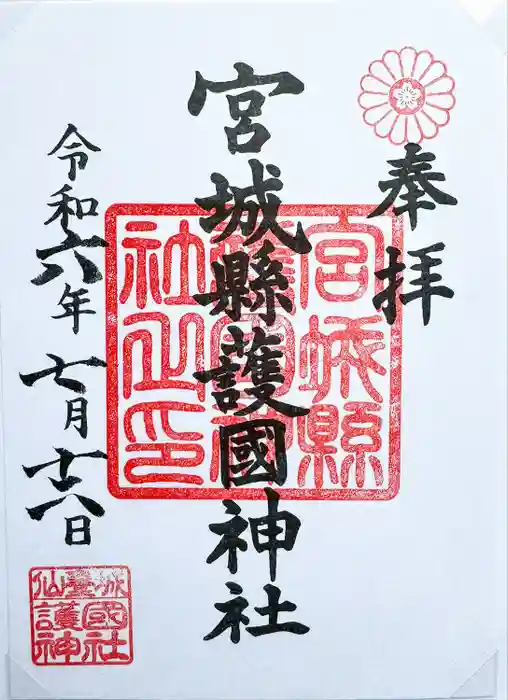 奉拝
宮城縣護國神社
宮城縣護國神社之印
令和六年七月十六日
仙臺城護國神社